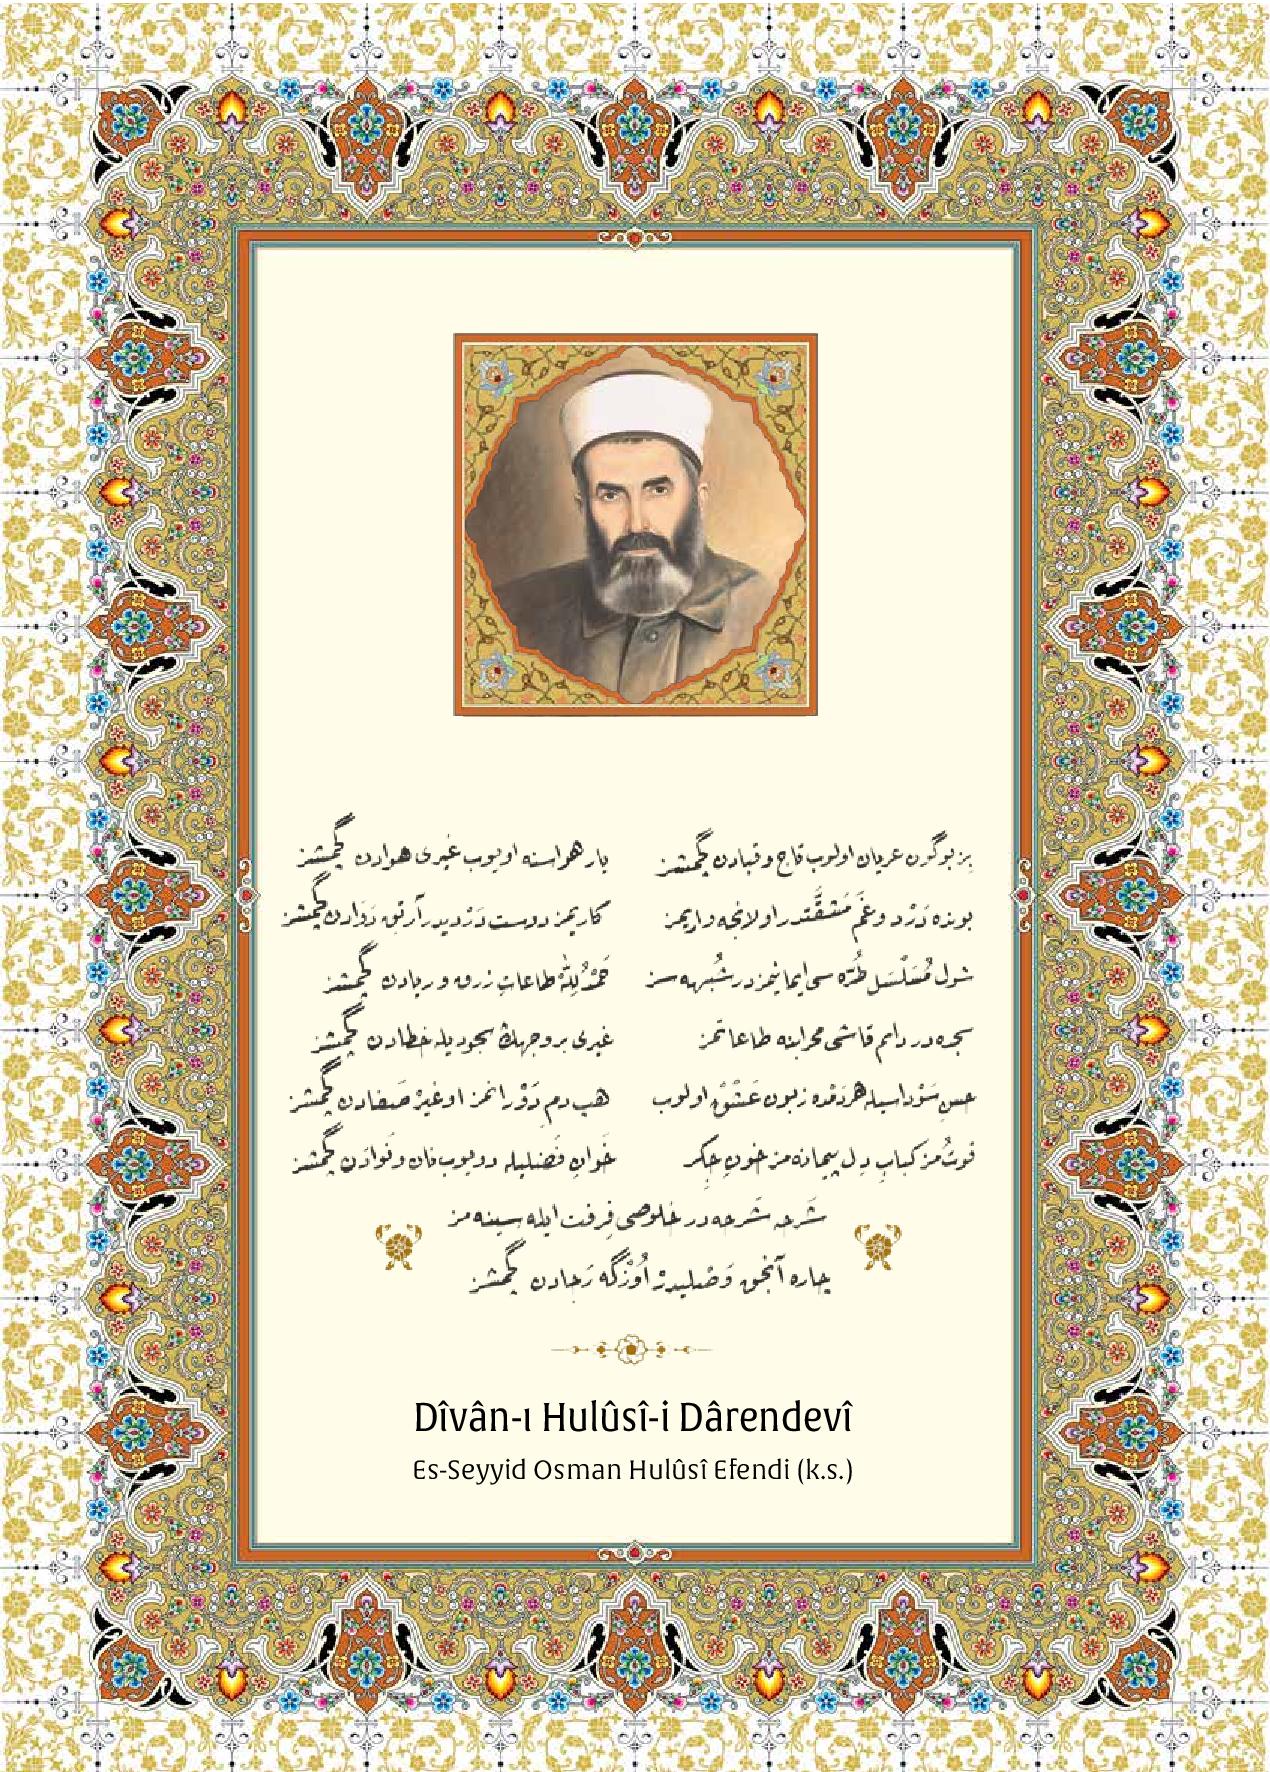 بز بوگون عريان اولوب تاج و قبادن گچمشز
يار هواسنه اويوب غيری هوادن گچمشز
بونده دَرْد و غَم مَشَقَّتدر اولانجه واريمز
كاريمز دوست دَرْديدر آرتق دَوَادن گچمشز
شول مُسَلْسَل طُرّه سی ايمانمزدر شُبهه سز
حَمْدُ لِلّٰه طاعاتِ زرق و ريادن گچمشز
سجده در دائم قاشی محرابنه طاعاتمز
غيری بر وجهڭ سجوديله خطادن گچمشز
حسن سَوْداسيله هردَمْده زبون عَشْق اولوب
هب دم دَوْرانمز اوغيرْ صَفادن گچمشز
قوتُمز كبابِ دل پيمانه مز خونِ جِگر
خَوانِ فَضليله دويوب نان و نَوادَن گچمشز
شَرحه شَرحه در خلوصی فِرقت ايله سينه مز
چاره آنجق وَصْليدرْ اُوْزْگه رَجادن گچمشز
Dîvân-ı Hulûsî-i Dârendevî
Es-Seyyid Osman Hulûsî Efendi (k.s.)